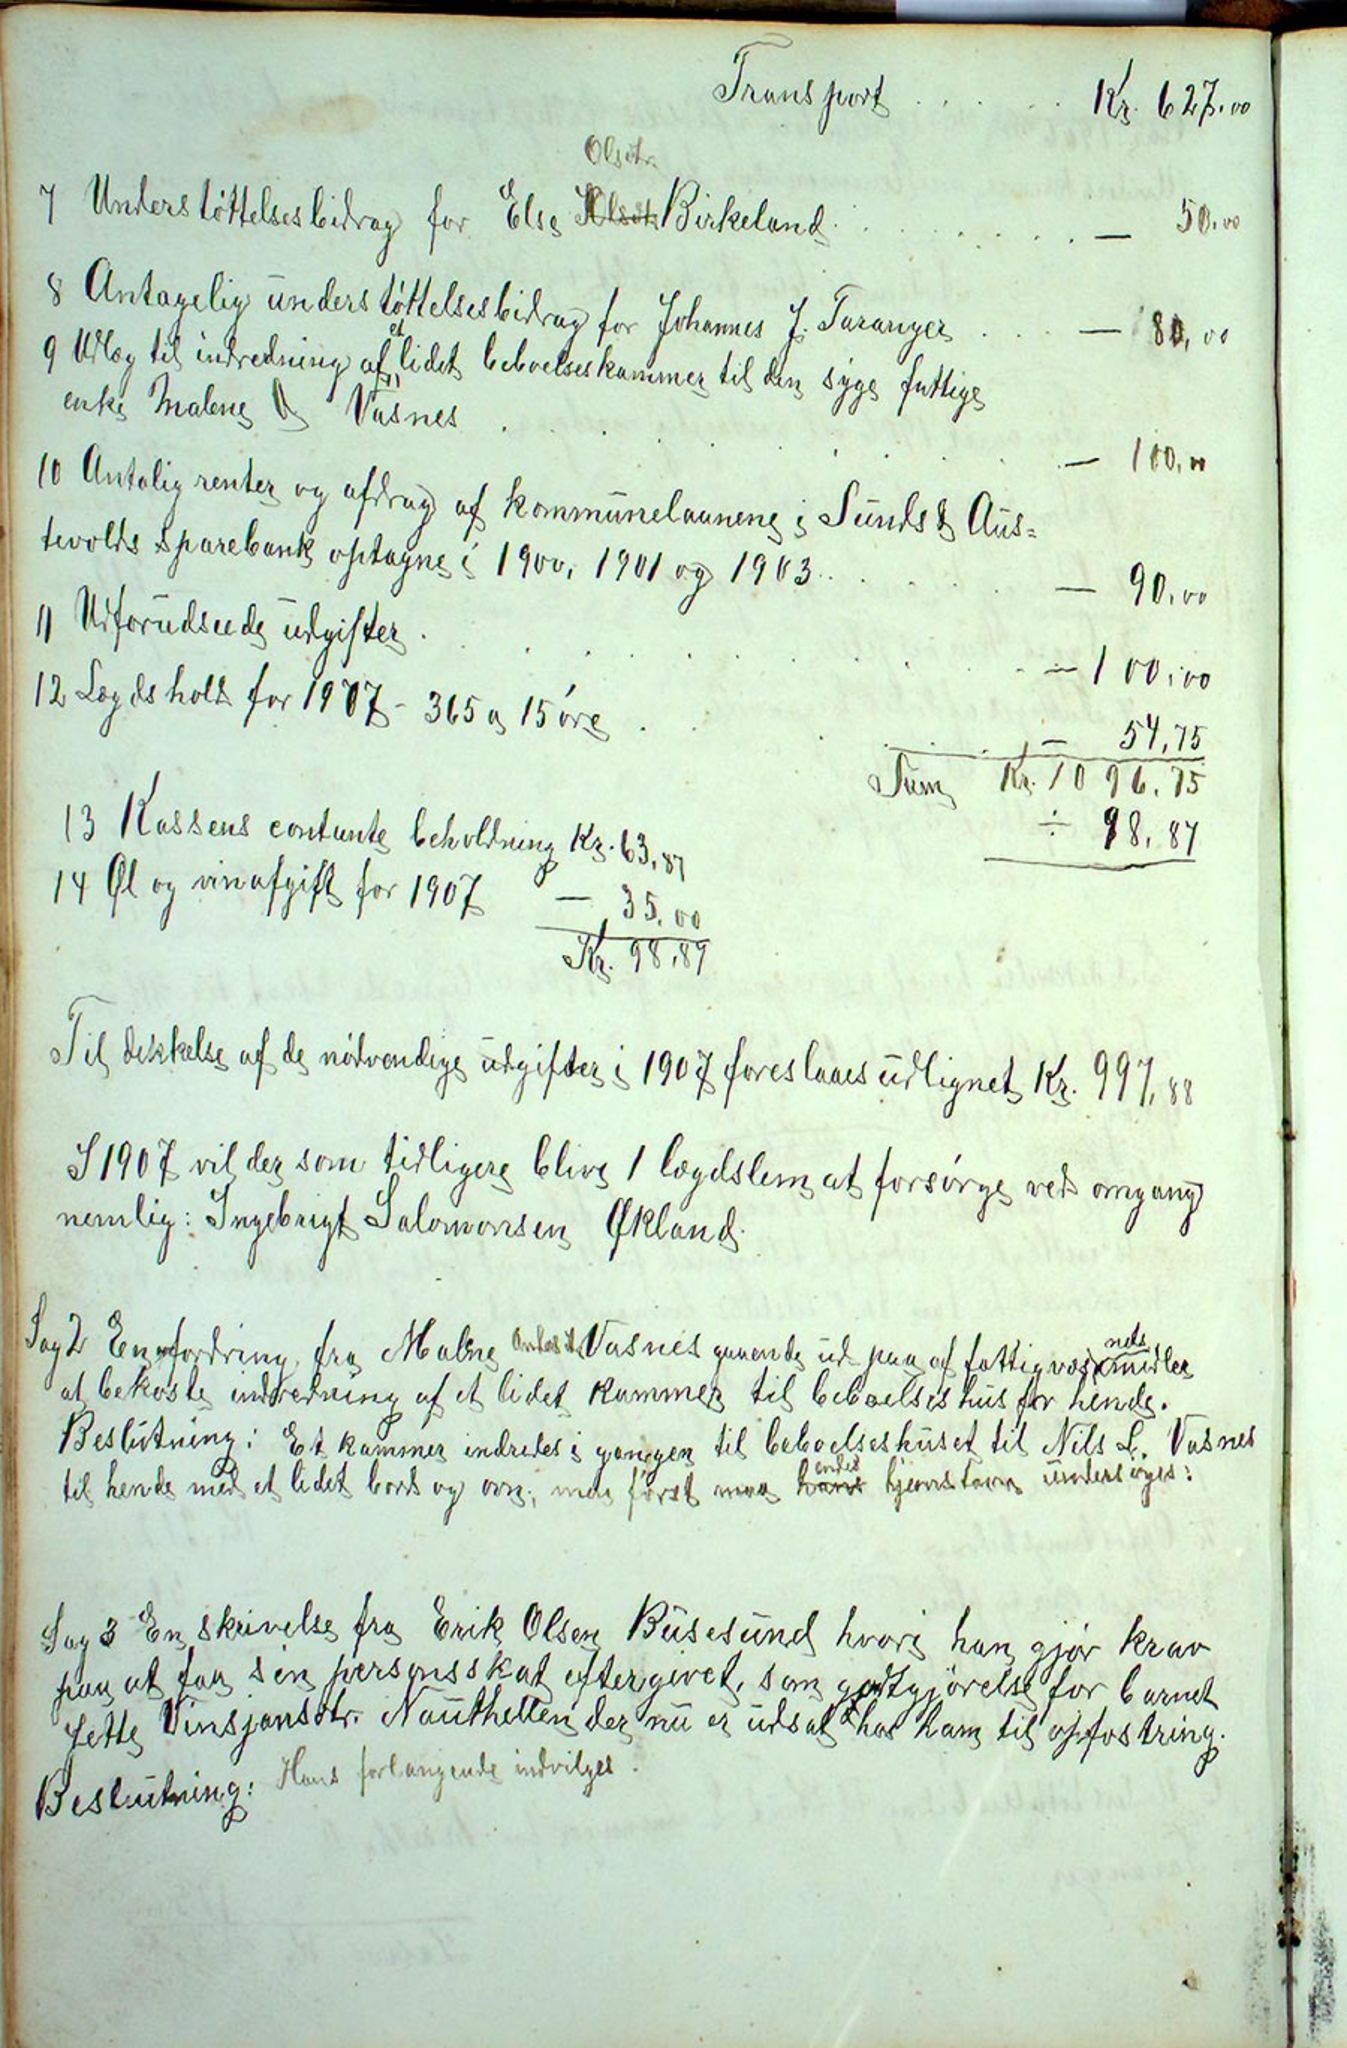 Transport . . . . . . Kr. 627.00
Olsdtr.
7 Understøttelsesbidrag for Else Birkeland . . . . . . . . . — 50.00
8 Antagelig understøttelsesbidrag for Johannes J. Taranger . . . — 80,00
9 Udlæg til indredning af et lidet beboelseskammer til den syge fattige
enke Malene Vasnes . . . . . . . . . — 100.00
10 Antalig renter og afdrag af kommunelaanene i Sunds & Aus=
tevolds Sparebank optagne i 1900, 1901 og 1903 . . . . . — 90.00
11 Uforudseede udgifter . . . . . . . . . — 100.00
12 Lægdshold for 1907 - 365 a 15 øre . . . . . — 54,75
Sum Kr. 1096.75
÷ 98,87
13 Kassens contante beholdning Kr. 63,87
14 Øl og vinafgift for 1907 — 35.00
Kr. 98,87
Til dekkelse af de nødvendige udgifter i 1907 foreslaaes udlignet Kr. 997,88
I 1907 vil der som tidligere blive 1 lægdslem at forsørge ved omgang
nemlig: Ingebrigt Salomonsen Økland.
Sag 2 En fordring fra Malene Vasnes gaaende ud paa af fattigvæsnets midler
at bekoste indredning af et lidet kammer til beboelseshus for hende.
Beslutning: Et kammer indredes i gangen til beboelseshuset til Nils L. Vasnes
til hende med et lidet bord og ovn, men først maa hendes hjemstavn undersøges:
Sag 3 En skrivelse fra Erik Olsen Busesund hvori han gjør krav
paa at faa sin personsskat eftergivet, som godtgjørelse for barnet
Jette Vinsjansdtr. Nauthellen der nu er udsat hos ham til opfostring.
Beslutning: Hans forlangende indvilges.